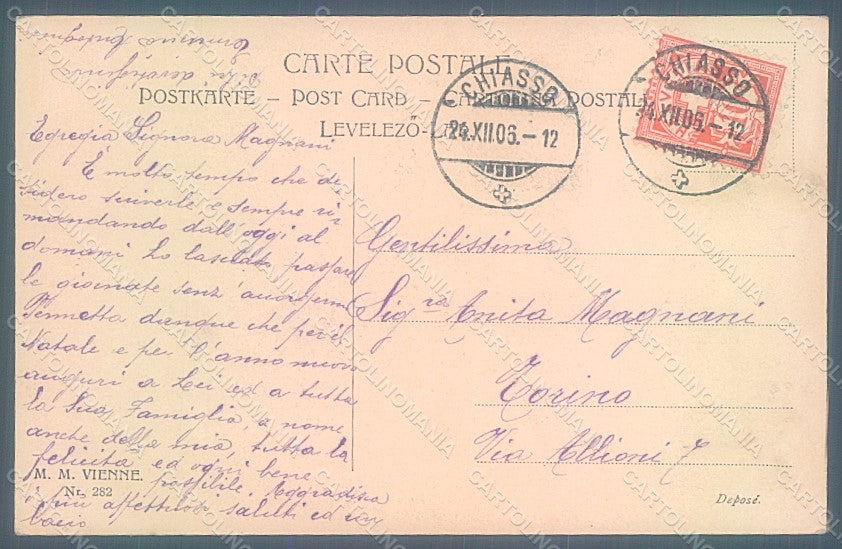 CARTE POSTALE
POSTKARTE – POST CARD – POSTALE
LEVELEZŐ-L
CHIASSO
24.XII.06.–12
CHIASSO
24.XII.06.–12
Egregia Signora Magnani
È molto tempo che de-
sidero scriverle e sempre ri-
mandando dall'oggi al
domani ho lasciato passare
le giornate senz'
Permetta dunque che per il
Natale e per l'anno nuovo
auguri a Lei ed a tutta
la Sua Famiglia, a nome
anche della mia, tutta la
felicità ed ogni bene
possibile. Aggradisca
i più affettuosi saluti ed un
bacio
Gemma
Gentilissima
Sig.ra Anita Magnani
Torino
Via Allioni 7
M. M. VIENNE.
Nr. 282
Deposé.
CARTOLINOMANIA